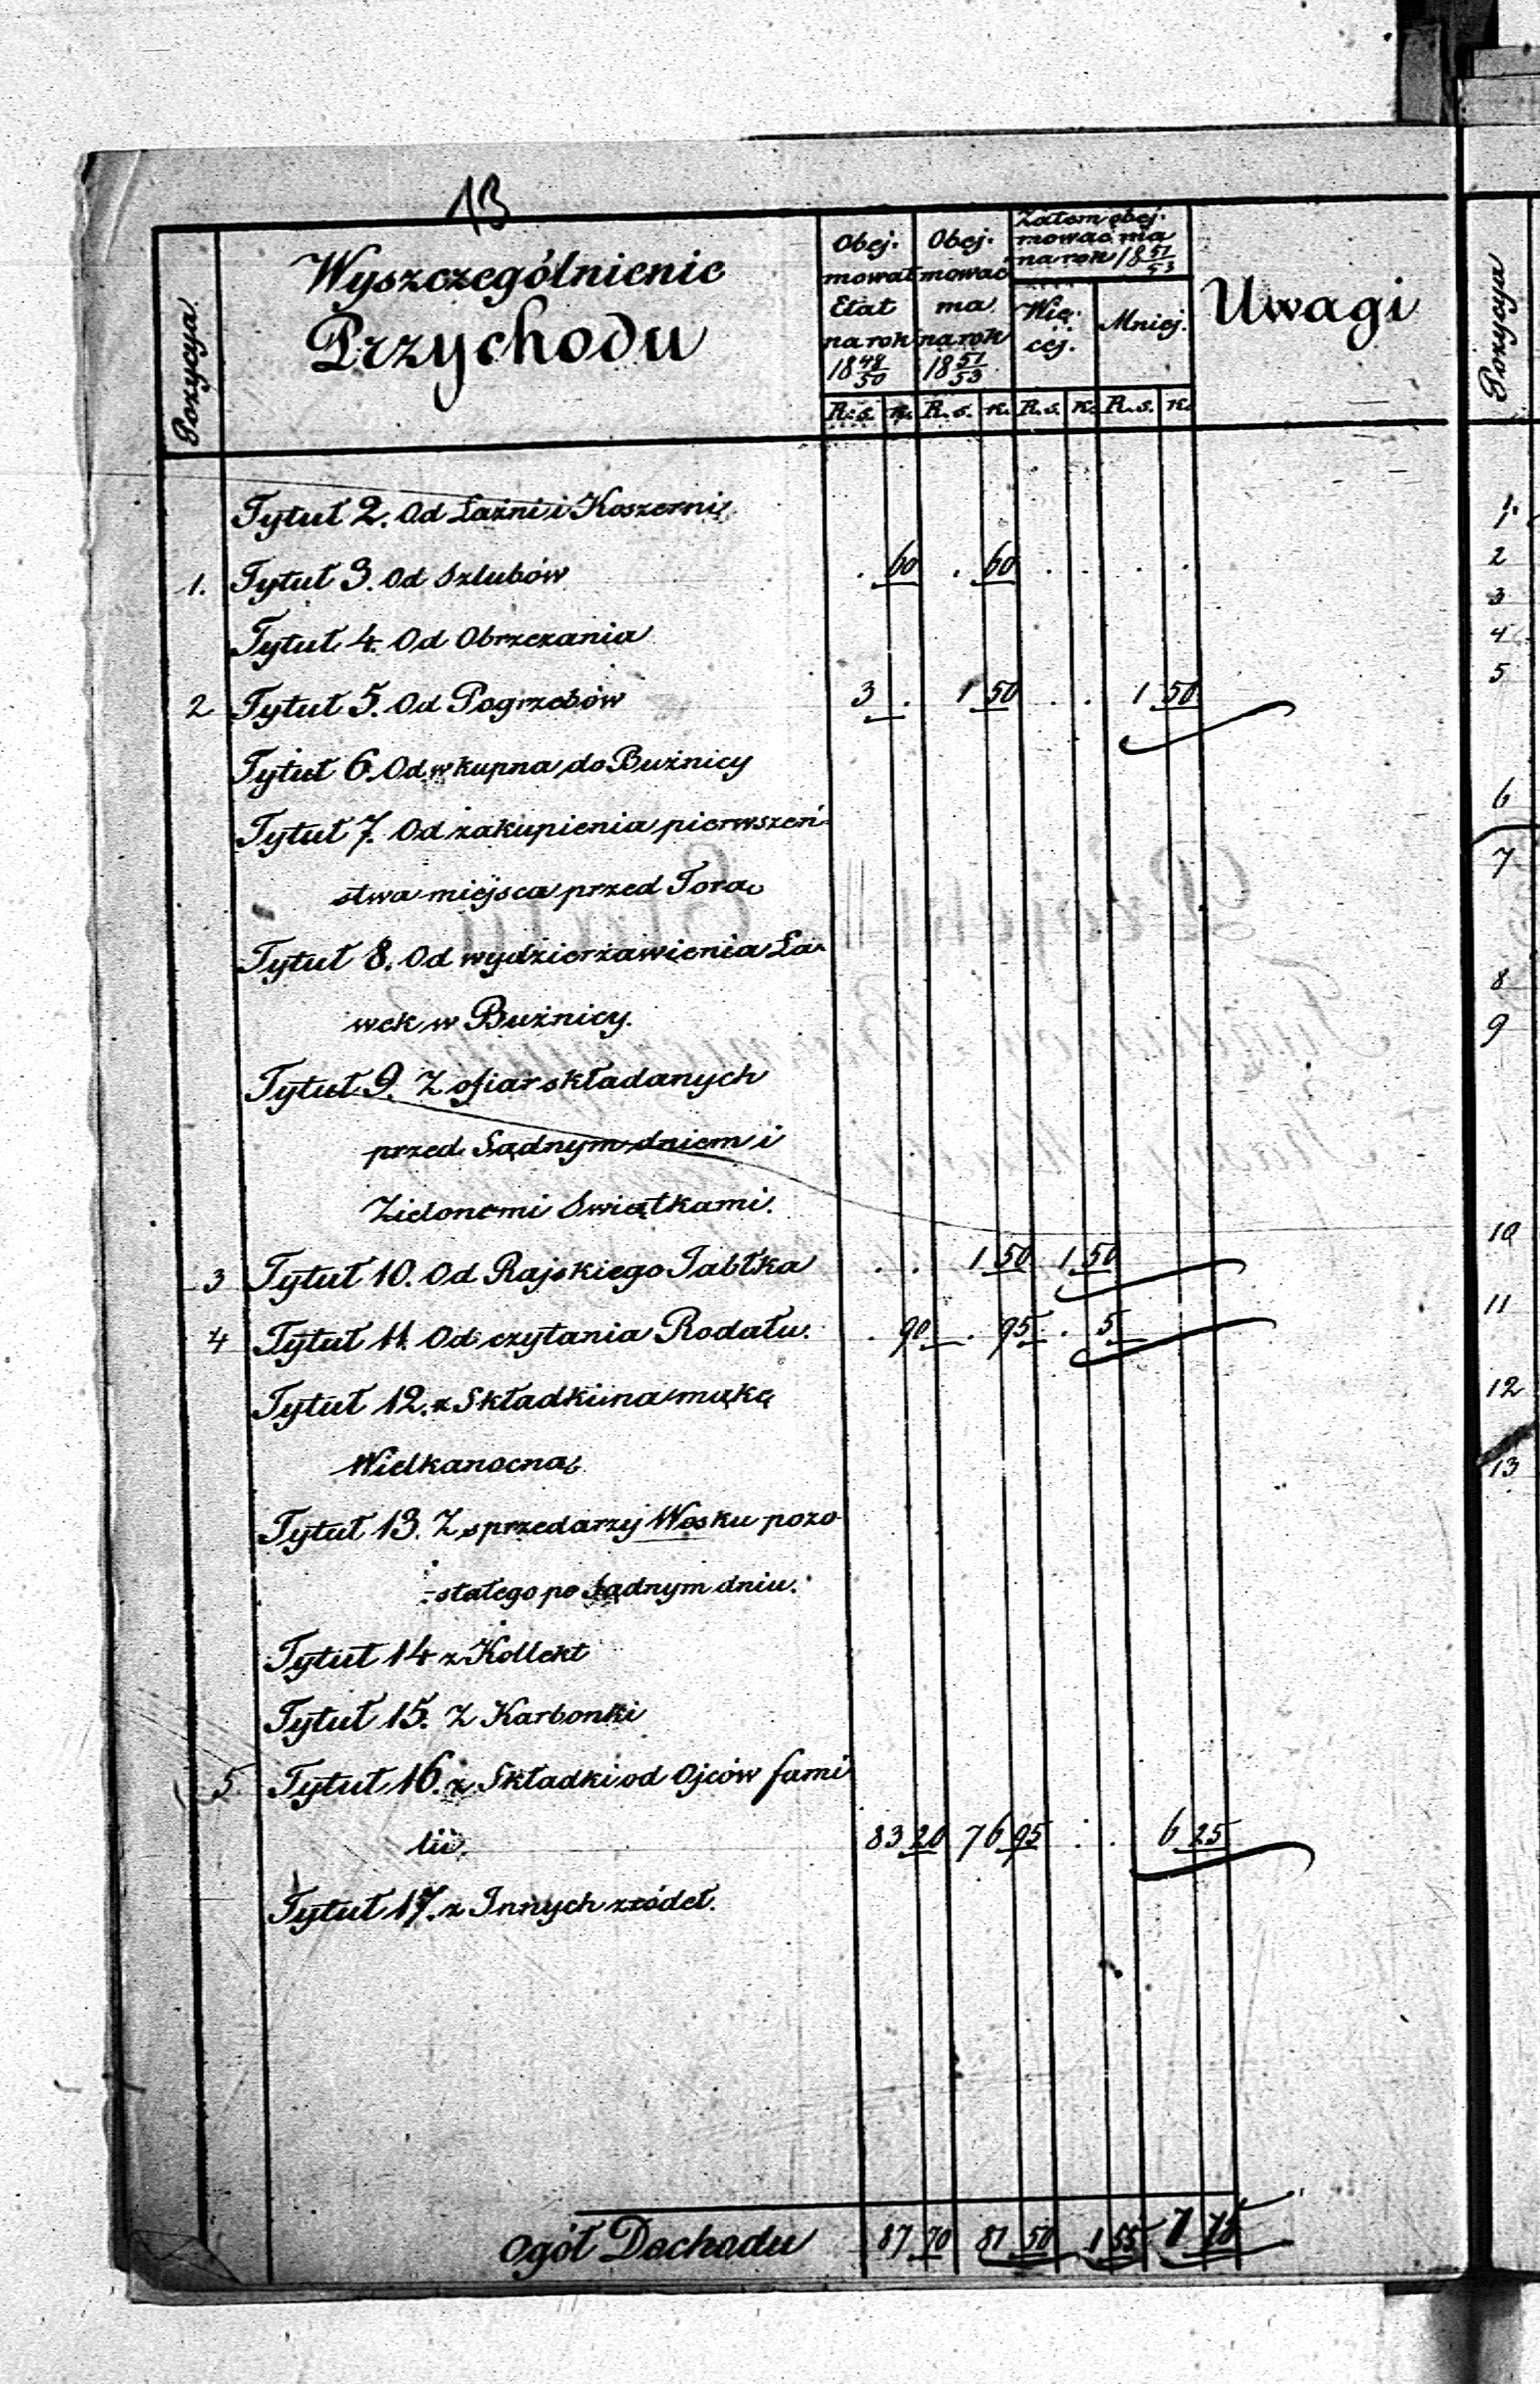 13
Pozycya
Wyszczególnienie
Przychodu
Obej-
mował
Etat
na rok
18 48/50
Obej-
mować
ma
na rok
18 51/53
Zatem obej-
mować ma
na rok 18 51/53
Wię-
cej.
Mniej.
Uwagi
R. s. k. R. s. k. R. s. k. R. s. k.
Tytuł 2. Od Łaźni i Koszerni
1. Tytuł 3. Od Szlubów . 60 . 60 . . . .
Tytuł 4. Od Obrzezania
2 Tytuł 5. Od Pogrzebów 3 . 1 50 . . 1 50
Tytuł 6. Od wkupna do Bużnicy
Tytuł 7. Od zakupienia pierwszeń-
stwa miejsca przed Torą
Tytuł 8. Od wydzierżawienia Ła-
wek w Bużnicy.
Tytuł 9. Z ofiar składanych
przed Sądnym dniem i
Zielonemi Swiątkami.
3 Tytuł 10. Od Rajskiego Jabłka . . 1 50 1 50
4 Tytuł 11. Od czytania Rodału. . 90 . 95 . 5
Tytuł 12. z Składki na mąkę
Wielkanocną
Tytuł 13. Z sprzedarzy Wosku pozo
-stałego po Sądnym dniu.
Tytuł 14 z Kollekt
Tytuł 15. Z Karbonki
5 Tytuł 16. z Składki od Ojców fami
lii. 83 20 76 95 . . 6 25
Tytuł 17. z Innych zródeł.
Ogół Dochodu 87 70 81 50 1 55 7 75
Pozycya
1.
2
3
4
5
6
7
8
9
10
11
12
13